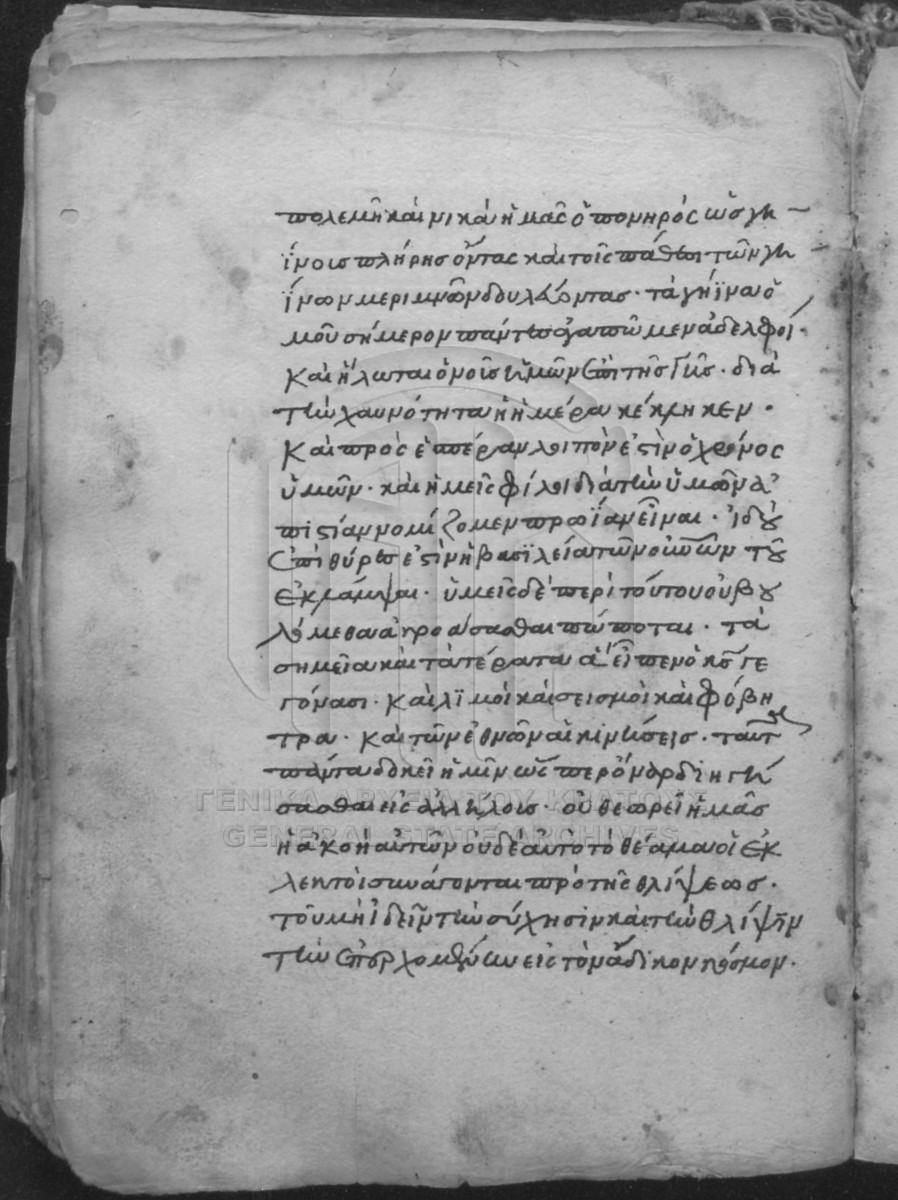 πολεμῆ καὶ νικὰ ἡμᾶς ὁ πονηρός ὡς γη
ΐνοις πλήρης ὄντας καὶ τοῖς πάθεσι τῶν γη
ΐνων μεριμνῶν δουλεύοντας · τὰ γήϊνα ὁ
μοῦ σήμερον πάντες ἀγαπῶμεν ἀδελφοί ·
Καὶ ἥλωται ὁ νοῦς ἡμῶν ἐπὶ τῆς Γῆς · διὰ
τὴν χαυνότητα ἡ ἡμέρα κέκληκεν ·
Καὶ πρὸς ἑσπέραν λοιπὸν ἐστὶν ὁ χρόνος
ὑμῶν · καὶ ἡμεῖς φίλοι διὰ τὴν ὑμῶν ἀ
πιστίαν νομίζομεν πρωΐαν εἶναι · ἰδοὺ
ἐπὶ θύρες ἐστὶν ἡ βασϊλεία τῶν οὐνῶν τοῦ
ἐκλάμψαι · ὑμεῖς δὲ περὶ τούτου οὐ βου
λόμεθα ἀκροάσασθαι πώποται · τὰ
σημεῖα καὶ τὰ τέρατα ἃ εἶπεν ὁ κς γε
γόνασι · καὶ λϊμοὶ καὶ σεισμοὶ καὶ φόβη
τρα · καὶ τῶν ἐθνῶν αἱ κινήσεις · ταῦτα
πάντα δοκεῖ ἡμῖν ὥσπερ ὄναρ διηγή
σασθαι εἰς ἀλλήλοις · οὐ θεωρεῖ ἡμᾶς
ἡ ἀκοὴ αὐτῶν οὐδὲ αὐτὸ τὸ θέαμα οἱ ἐκ
λεητοὶ συνάγονται πρὸ τῆς θλίψεως ·
τοῦ μὴ ἰδεῖν τὴν σύχησιν καὶ τὴν θλίψην
τὴν ἐπερχομένην εἰς τὸν ἄδικον κόσμον ·
ΓΕΝΙΚΑ ΑΡΧΕΙΑ ΤΟΥ ΚΡΑΤΟΥΣ
GENERAL STATE ARCHIVES